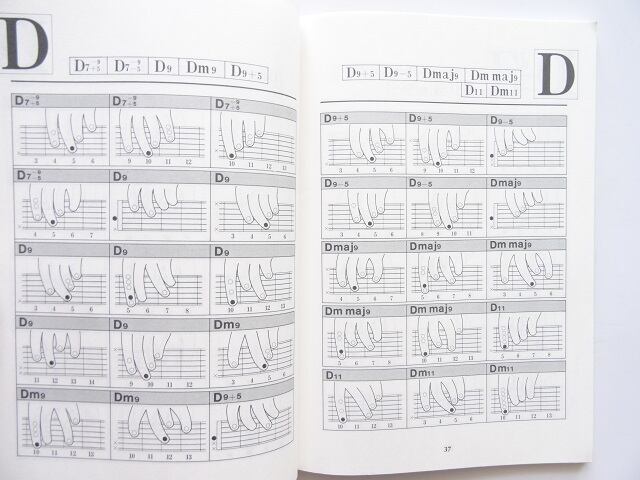 D
D7-9+5 D7-9-5 D9 Dm9 D9+5
D7-9-5 D7-9-5 D7-9+5
3 4 5 6
9 10 11 12
10 11 12 13
D7-9-5 D9 D9
4 5 6 7
3 4 5 6
D9 D9 D9
3 4 5 6
5 6 7 8
10 11 12 13
D9 D9 Dm9
11 12 13 14
9 10 11 12
3 4 5 6
Dm9 Dm9 D9+5
10 11 12 13
10 11 12 13
D9+5 D9-5 Dmaj9 Dm maj9
D11 Dm11
D
D9+5 D9+5 D9-5
3 4 5 6
9 10 11 12
D9-5 D9-5 Dmaj9
3 4 5 6
8 9 10 11
Dmaj9 Dmaj9 Dm maj9
3 4 5 6
5 6 7 8
3 4 5 6
Dm maj9 Dm maj9 D11
5 6 7 8
9 10 11 12
5 6 7 8
D11 Dm11 Dm11
10 11 12 13
3 4 5 6
10 11 12 13
37